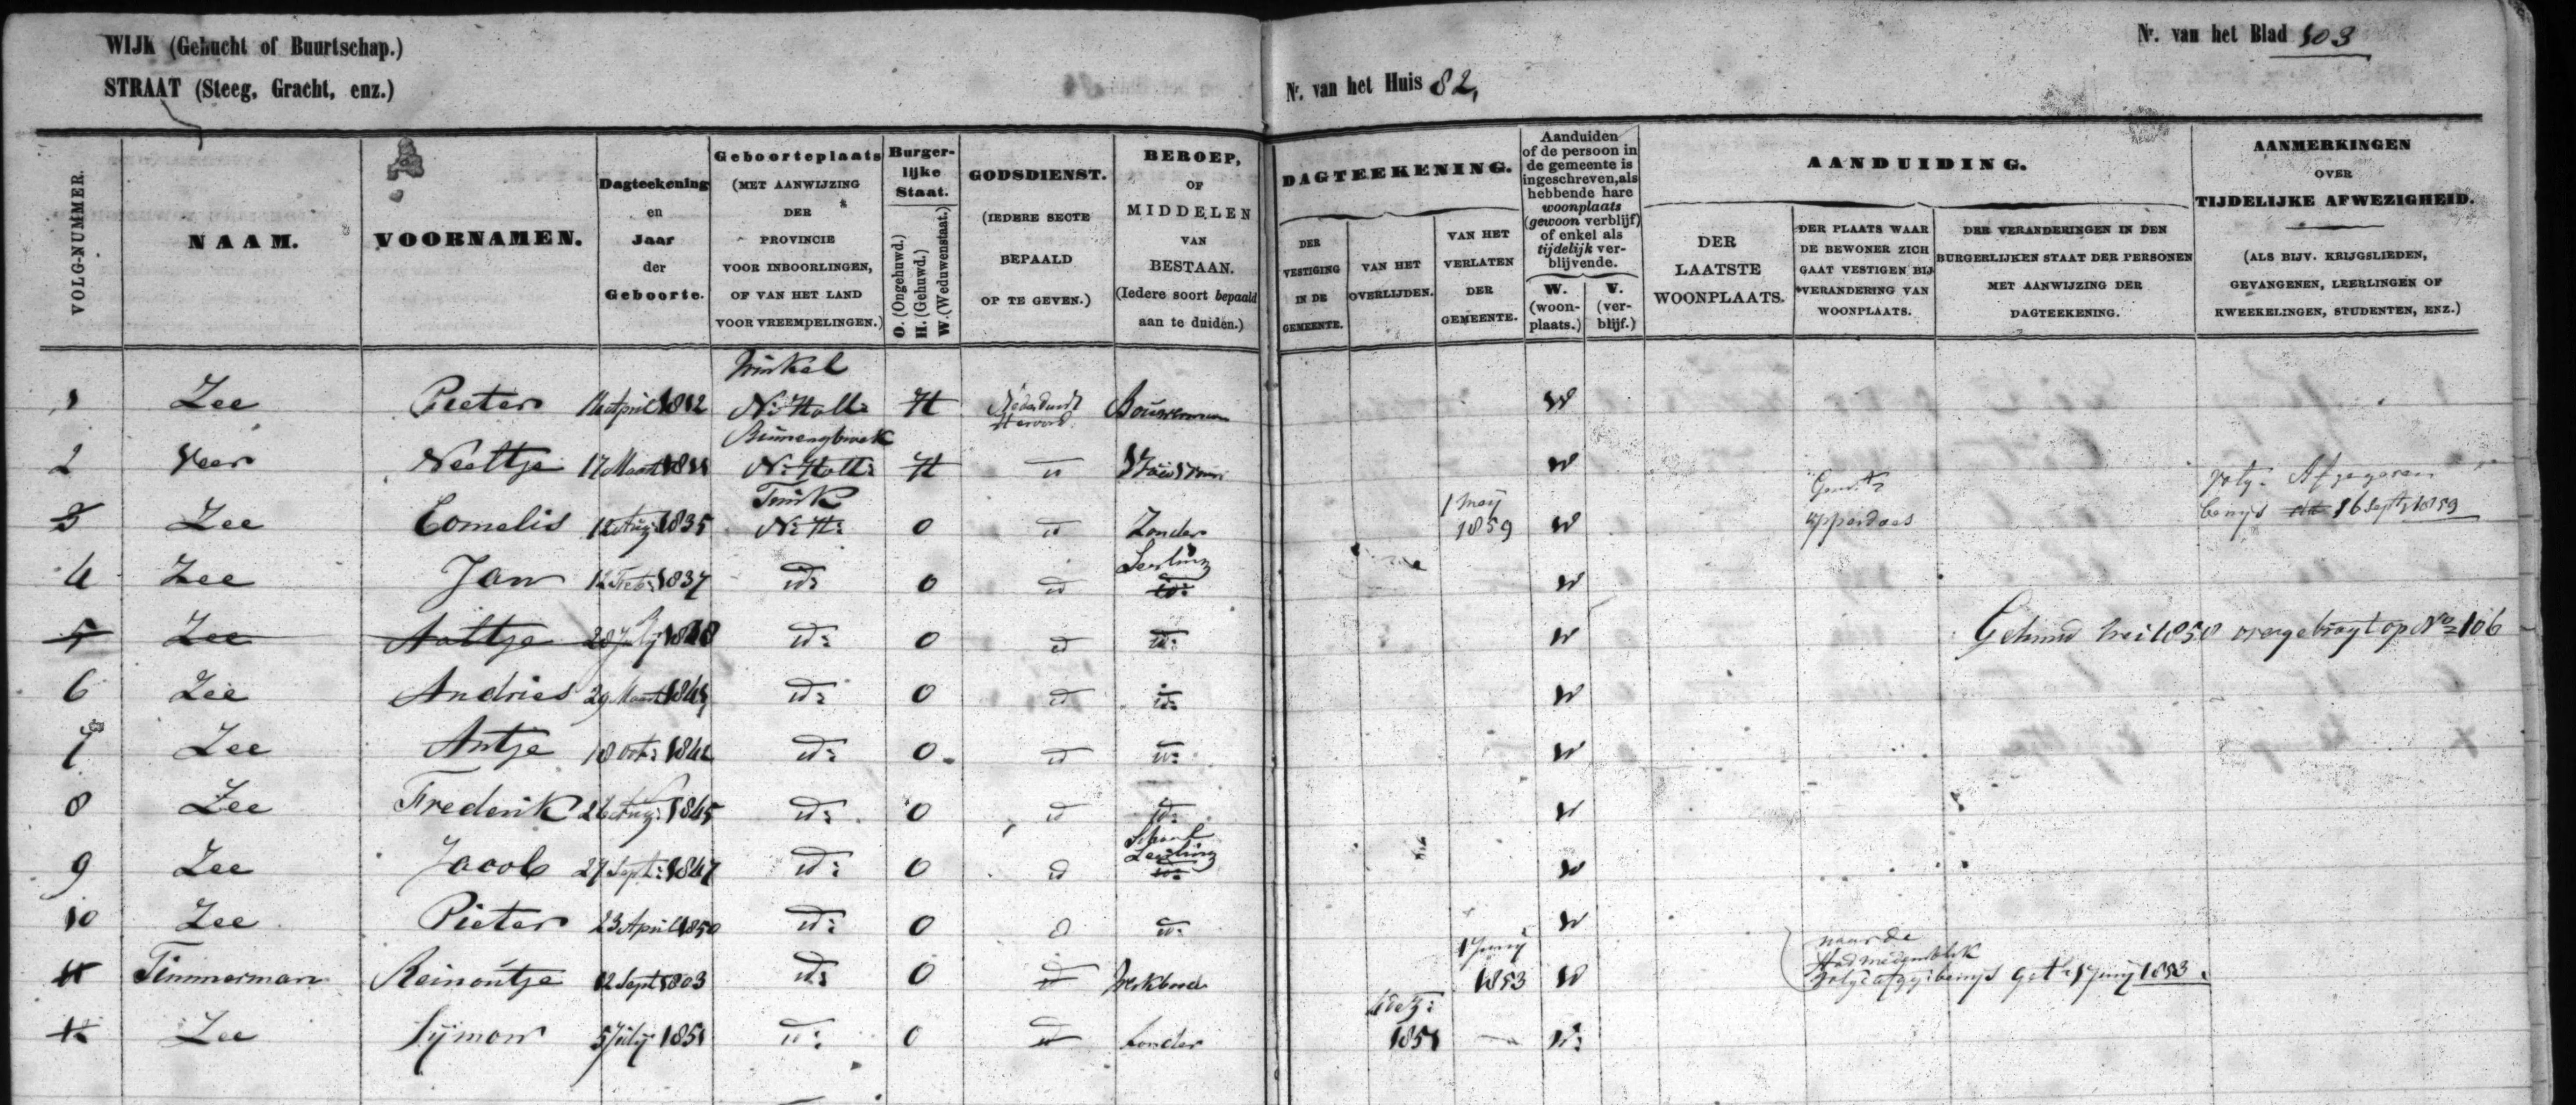 WIJK (Gehucht of Buurtschap.)
STRAAT (Steeg, Gracht, enz.)
Nr. van het Huis 82,
Nr. van het Blad 103
VOLG-NUMMER.
NAAM.
VOORNAMEN.
Dagteekening
en
Jaar
der
Geboorte.
Geboorteplaats
(MET AANWIJZING
DER
PROVINCIE
VOOR INBOORLINGEN,
OF VAN HET LAND
VOOR VREEMDELINGEN.)
Burger-
lijke
Staat.
O. (Ongehuwd.)
H. (Gehuwd.)
W. (Weduwenstaat.)
GODSDIENST.
(IEDERE SECTE
BEPAALD
OP TE GEVEN.)
BEROEP,
OF
MIDDELEN
VAN
BESTAAN.
(Iedere soort bepaald
aan te duiden.)
DAGTEEKENING.
DER
VESTIGING
IN DE
GEMEENTE.
VAN HET
OVERLIJDEN.
VAN HET
VERLATEN
DER
GEMEENTE.
Aanduiden
of de persoon in
de gemeente is
ingeschreven, als
hebbende hare
woonplaats
(gewoon verblijf)
of enkel als
tijdelijk ver-
blijvende.
W.
(woon-
plaats.)
V.
(ver-
blijf.)
AANDUIDING.
DER
LAATSTE
WOONPLAATS.
DER PLAATS WAAR
DE BEWONER ZICH
GAAT VESTIGEN BIJ
VERANDERING VAN
WOONPLAATS.
DER VERANDERINGEN IN DEN
BURGERLIJKEN STAAT DER PERSONEN
MET AANWIJZING DER
DAGTEEKENING.
AANMERKINGEN
OVER
TIJDELIJKE AFWEZIGHEID.
(ALS BIJV. KRIJGSLIEDEN,
GEVANGENEN, LEERLINGEN OF
KWEEKELINGEN, STUDENTEN, ENZ.)
1 Zee Pieter April 1812 N: Holl: H Bouwman W
2 Veer Neeltje 17 Maart N: Holl: H W
3 Zee Cornelis 12 Aug 1835 Twisk N: H: O id Zonder 1 Meij 1859 W Opperdoes
bewijs 16 Sept 1859
4 Zee Jan 12 Feb: 1837 id: O id Leerling id: W
5 Zee Aaltje July id: O id id: W Gehuwd 1858 overgebragt op No 106
6 Zee Andries 29 Maart id: O id id: W
7 Zee Antje 18 Oct: 1842 id: O id id: W
8 Zee Frederik 26 Aug: 1845 id: O id id: W
9 Zee Jacob 27 Sept: 1847 id: O id School Leerling id: W
10 Zee Pieter 23 April 1850 id: O id: W
11 Timmerman Reinoutje 12 Sept 1803 id: O id 1 Junij 1853 W naar de
Stad Medemblik
bewijs get 1 Junij 1853
12 Zee Sijmon 5 July 1851 id: O id Zonder 1851 — W: